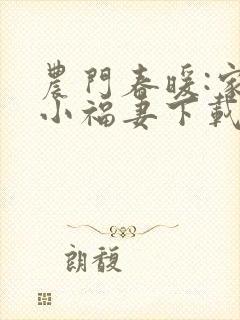 農門春暖:家
小福妻下載
朗馥